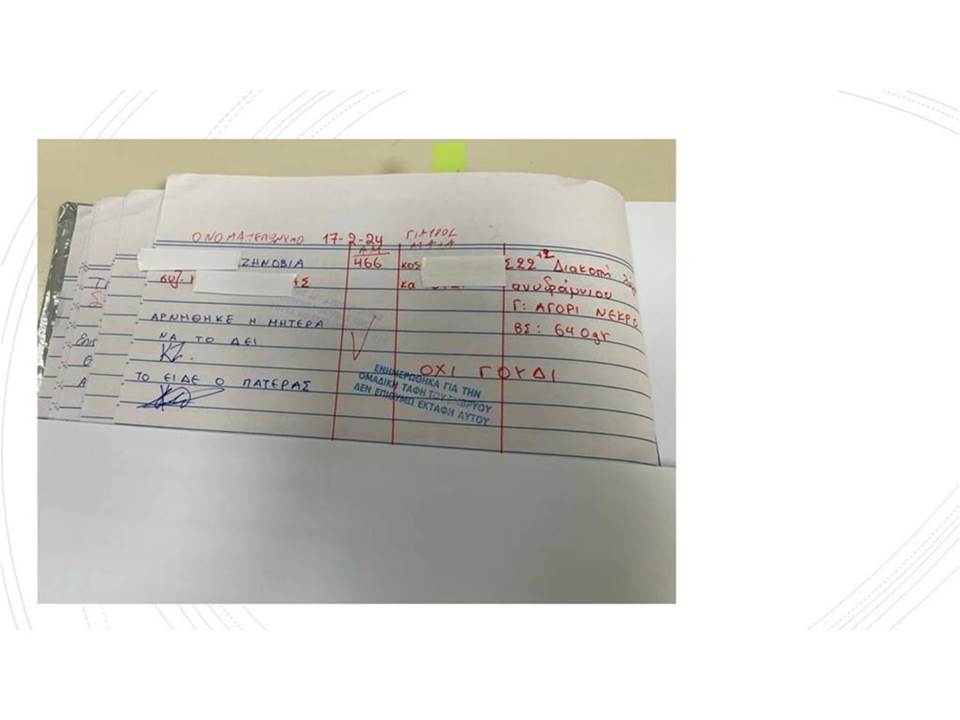 ΟΝΟΜΑΤΕΠΩΝΥΜΟ 17-2-24 ΓΙΑΤΡΟΣ
ΑΜ ΜΑΙΑ
ΖΗΝΟΒΙΑ 466 κος Σ22+2 Διακοπή λόγω
συζ. ΗΣ κα ανυδράμνιου
Γ: ΑΓΟΡΙ ΝΕΚΡΟ
ΒΣ: 640gr
ΑΡΝΗΘΗΚΕ Η ΜΗΤΕΡΑ
ΝΑ ΤΟ ΔΕΙ
ΟΧΙ ΓΟΥΔΙ
ΤΟ ΕΙΔΕ Ο ΠΑΤΕΡΑΣ
ΕΝΗΜΕΡΩΘΗΚΑ ΓΙΑ ΤΗΝ
ΟΜΑΔΙΚΗ ΤΑΦΗ ΤΟΥ ΕΜΒΡΥΟΥ
ΔΕΝ ΕΠΙΘΥΜΩ ΕΚΤΑΦΗ ΑΥΤΟΥ